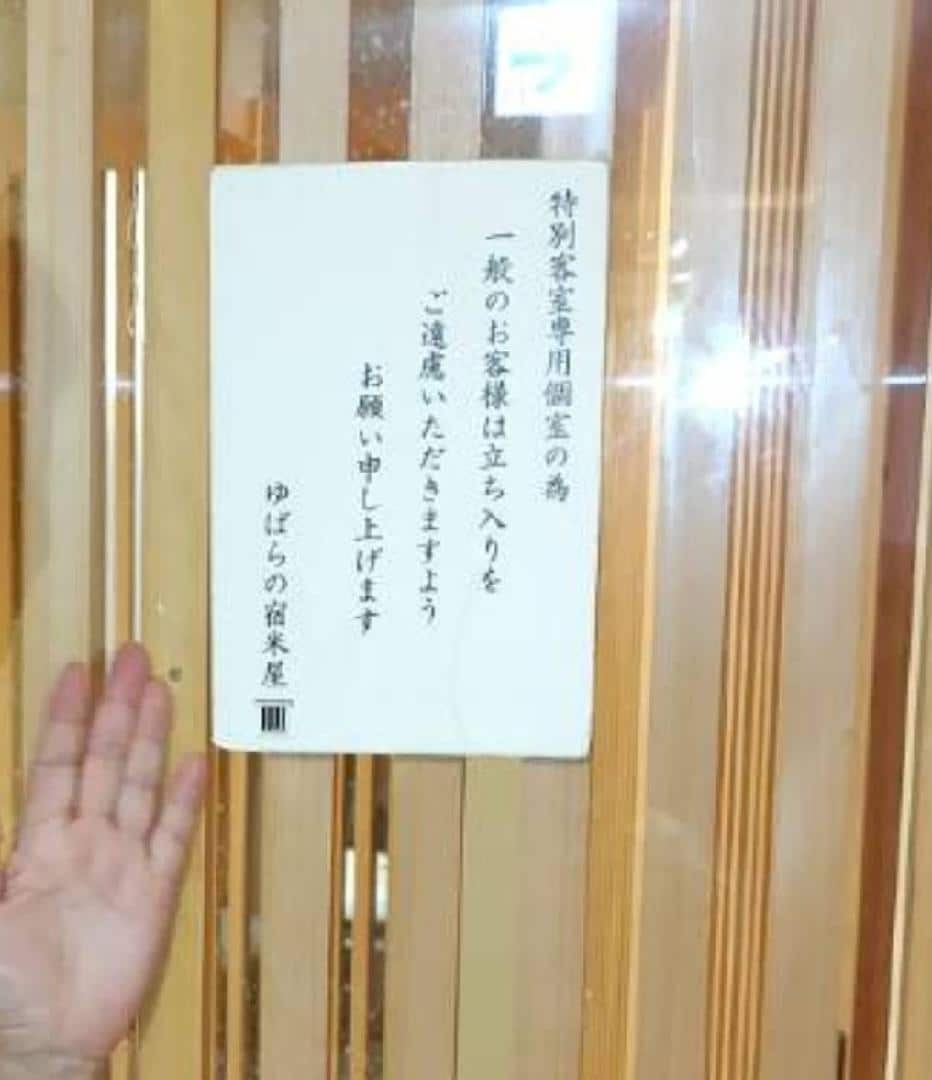 特別客室専用個室の為
一般のお客様は立ち入りを
ご遠慮いただきますよう
お願い申し上げます
ゆばらの宿米屋